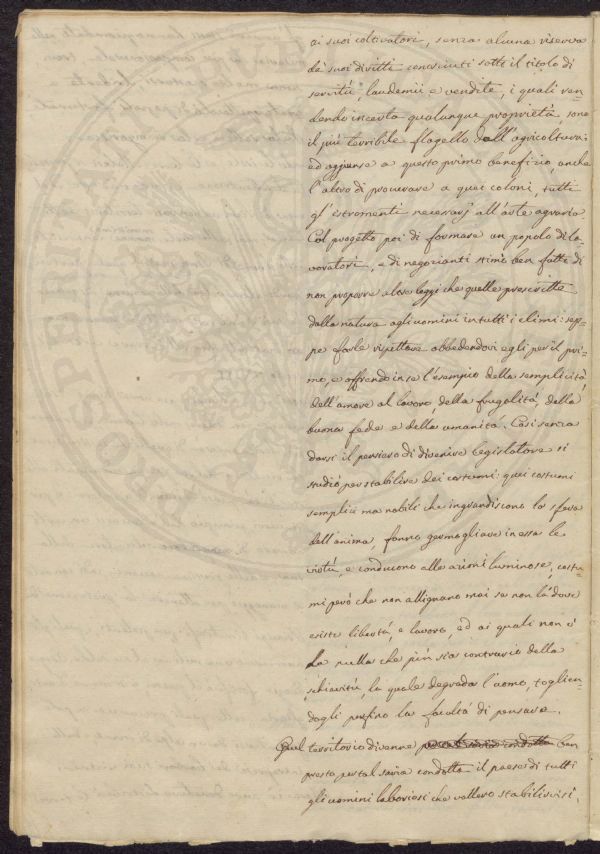 ai suoi coltivatori, senza alcuna riserva
de' suoi diritti conosciuti sotto il titolo di
servitù, laudemii e vendite, i quali ren-
dendo incerta qualunque proprietà sono
il più terribile flagello dell'agricoltura;
ed aggiunse a questo primo benefizio, anche
l'altro di procurare a quei coloni, tutti
gl'istromenti necessarj all'arte agraria.
Col progetto poi di formare un popolo di la-
voratori, e di negozianti stimò ben fatto di
non proporre altre leggi che quelle prescritte
dalla natura agli uomini in tutti i climi: sep-
pe farle rispettare obbedendovi egli per il pri-
mo, e offrendo in se l'esempio della semplicità,
dell'amore al lavoro, della frugalità, della
buona fede e della umanità. Così senza
darsi il pensiero di divenire legislatore si
studiò per stabilire dei costumi: quei costumi
semplici ma nobili che ingrandiscono la sfera
dell'anima, fanno germogliare in essa le
virtù, e conducono alle azioni luminose, costu-
mi però che non allignano mai se non là dove
esiste libertà, e lavoro, ed ai quali non v'
ha nulla che più sia contrario della
schiavitù, la quale degrada l'uomo, toglien-
dogli perfino la facoltà di pensare.
Qual territorio divenne ben
presto per tal savia condotta il paese di tutti
gli uomini laboriosi che vollero stabilirvisi,
PROSPERITÀ